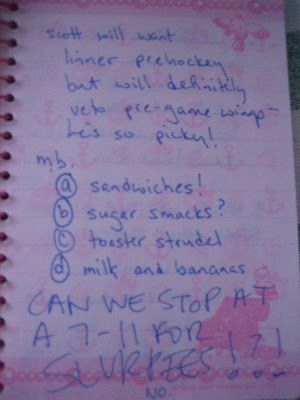 scott will want
linner prehockey
but will definitely
veto pre-game wings -
he's so picky!
m.b.
ⓐ sandwiches!
ⓑ sugar smacks?
ⓒ toaster strudel
ⓓ milk and bananas
CAN WE STOP AT
A 7-11 FOR
SLURPEES!?!
NO.